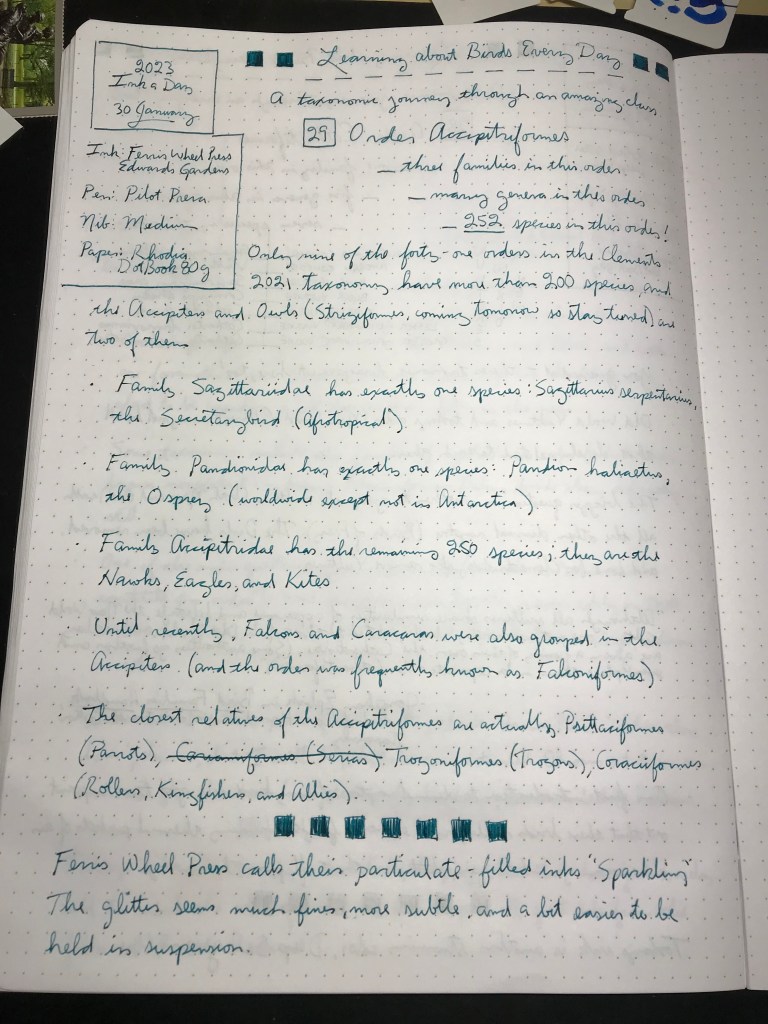 2023
Ink a Day
30 January
Learning about Birds Every Day
A taxonomic journey through an amazing class
29 Order Accipitriformes
– three families in this order
– many genera in this order
– 252 species in this order!
Ink: Ferris Wheel Press
Edwards Gardens
Pen: Pilot Prera
Nib: Medium
Paper: Rhodia
DotBook 80g
Only nine of the forty-one orders in the Clements
2021 taxonomy have more than 200 species, and
the Accipiters and Owls (Strigiformes, coming tomorrow so stay tuned) are
two of them
· Family Sagittariidae has exactly one species: Sagittarius serpentarius,
the Secretarybird (Afrotropical)
· Family Pandionidae has exactly one species: Pandion haliaetus,
the Osprey (worldwide except not in Antarctica)
· Family Accipitridae has the remaining 250 species; they are the
Hawks, Eagles, and Kites
· Until recently, Falcons and Caracaras were also grouped in the
Accipiters (and the order was frequently known as Falconiformes)
· The closest relatives of the Accipitriformes are actually Psittaciformes
(Parrots), Cariamiformes (Serias) Trogoniformes (Trogons), Coraciiformes
(Rollers, Kingfishers, and Allies).
Ferris Wheel Press calls their particulate-filled inks "Sparkling"
The glitter seems much finer, more subtle, and a bit easier to be
held in suspension.